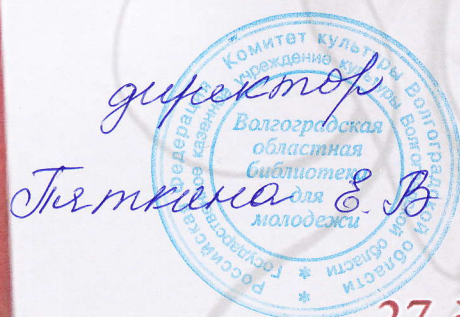 директор
Пяткина Е. В
Российская Федерация Комитет культуры Волгоградской области
Государственное казенное учреждение культуры Волгоградской области
Волгоградская
областная
библиотека
для
молодежи
27